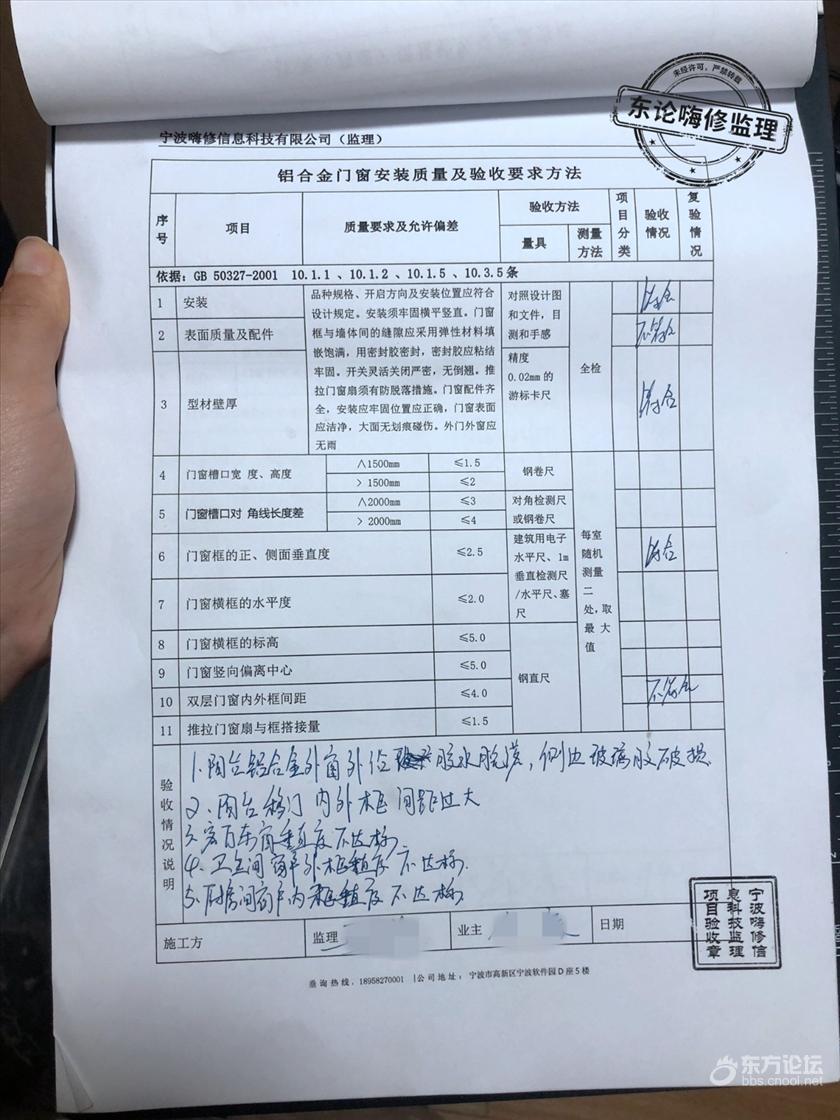 未经许可，严禁转载
东论嗨修监理
宁波嗨修信息科技有限公司（监理）
铝合金门窗安装质量及验收要求方法
序号 项目 质量要求及允许偏差 验收方法 项目分类 验收情况 复验情况
量具 测量方法
依据：GB 50327-2001 10.1.1 、10.1.2 、10.1.5 、10.3.5条
1 安装
2 表面质量及配件
3 型材壁厚
品种规格、开启方向及安装位置应符合
设计规定。安装须牢固横平竖直。门窗
框与墙体间的缝隙应采用弹性材料填
嵌饱满，用密封胶密封，密封胶应粘结
牢固。开关灵活关闭严密，无倒翘。推
拉门窗扇须有防脱落措施。门窗配件齐
全，安装应牢固位置应正确，门窗表面
应洁净，大面无划痕碰伤。外门外窗应
无雨
对照设计图
和文件，目
测和手感
精度
0.02mm的
游标卡尺
全检
符合
不符合
符合
4 门窗槽口宽 度、高度 ∧1500mm ≤1.5 钢卷尺
> 1500mm ≤2
5 门窗槽口对 角线长度差 ∧2000mm ≤3 对角检测尺
> 2000mm ≤4 或钢卷尺
6 门窗框的正、侧面垂直度 ≤2.5 符合
7 门窗横框的水平度 ≤2.0
建筑用电子
水平尺、1m
垂直检测尺
/水平尺、塞
尺
每室
随机
测量
二
处，取
最 大
值
8 门窗横框的标高 ≤5.0
9 门窗竖向偏离中心 ≤5.0
钢直尺
10 双层门窗内外框间距 ≤4.0 不符合
11 推拉门窗扇与框搭接量 ≤1.5
验收情况说明
1、阳台铝合金外窗外侧胶水脱落，侧边玻璃胶破损
2、阳台移门内外框间距过大
3、客厅东窗垂直度不达标
4、卫生间窗户外框垂直度不达标
5、厨房间窗户内框垂直度不达标
施工方 监理 业主 日期
宁波嗨修信
息科技监理
项目验收章
垂询热线：18958270001 |公司地址：宁波市高新区宁波软件园D座5楼
东方论坛
bbs.cnool.net